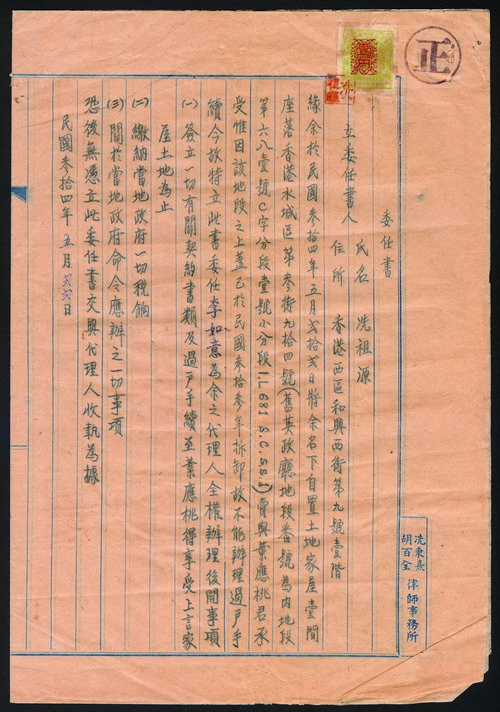 正
委任書
立委任書人 氏名 冼祖源
住所 香港西區和興西街第九號壹階
緣余於民國參拾四年五月貳拾貳日將余名下自置土地家屋壹間
座落香港水城區第參街九拾四號(舊英政廳地段番號為內地段
第六八壹號C字分段壹號小分段I.L 681 S.C.S.S.1)賣與葉應桃君承
受惟因該地段之上蓋已於民國參拾參年拆卸故不能辦理過戶手
續今故特立此書委任李如意為余之代理人全權辦理後開事項
(一)簽立一切有關契約書類及過戶手續至葉應桃得享受上言家
屋土地為止
(二)繳納當地政府一切稅餉
(三)關於當地政府命令應辦之一切事項
恐後無憑立此委任書交與代理人收執為據
民國參拾四年五月 日
冼秉熹
胡百全
律師事務所